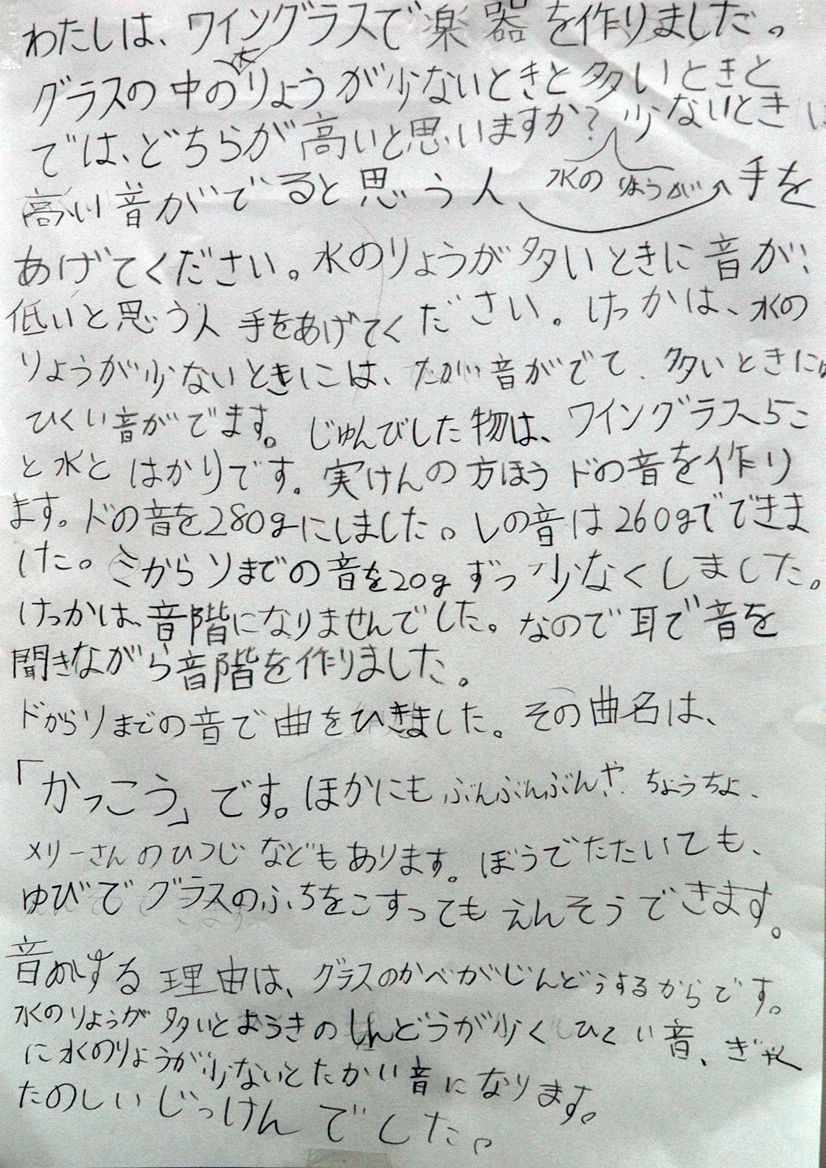 わたしは、ワイングラスで楽器を作りました。
グラスの中の水りょうが少ないときと多いときと
では、どちらが高いと思いますか？水のりょうが少ないときに
高い音がでると思う人、手を
あげてください。水のりょうが多いときに音が、
低いと思う人手をあげてください。けっかは、水の
りょうが少ないときには、たかい音がでて、多いときには
ひくい音がでます。じゅんびした物は、ワイングラス5こ
と水とはかりです。実けんの方ほうドの音を作り
ます。ドの音を280gにしました。レの音は260gでできま
した。ミからソまでの音を20gずつ少なくしました。
けっかは、音階になりませんでした。なので耳で音を
聞きながら音階を作りました。
ドからソまでの音で曲をひきました。その曲名は、
「かっこう」です。ほかにもぶんぶんぶんや、ちょうちょ、
メリーさんのひつじなどもあります。ぼうでたたいても、
ゆびでグラスのふちをこすってもえんそうできます。
音がする理由は、グラスのかべがしんどうするからです。
水のりょうが多いとようきのしんどうが少くひくい音、ぎゃく
に水のりょうが少ないとたかい音になります。
たのしいじっけんでした。